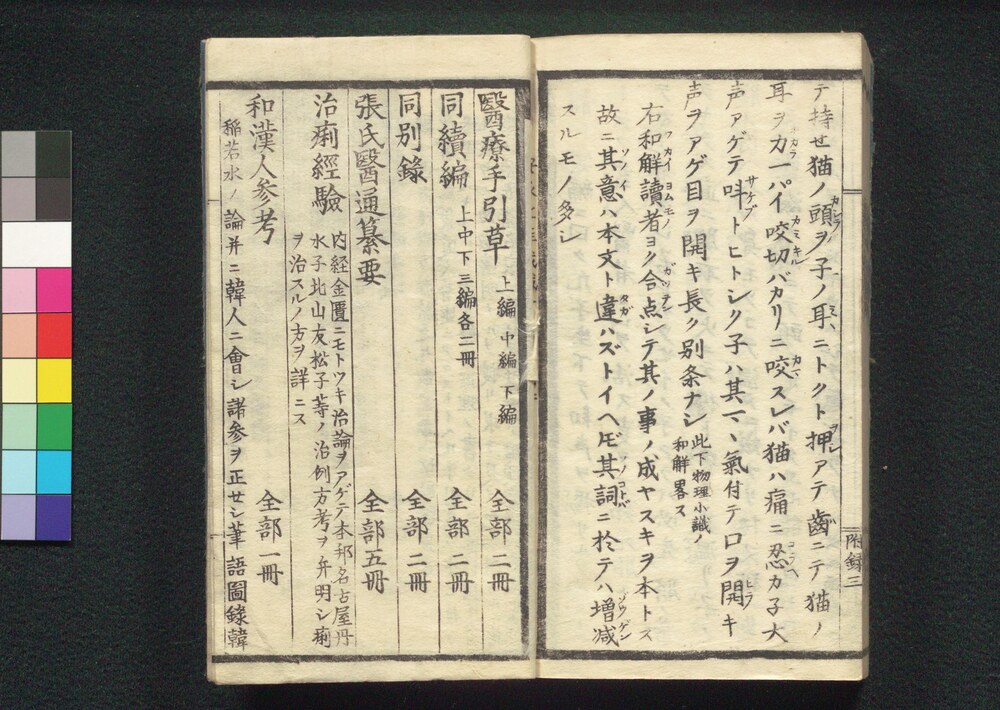 テ持セ猫ノ頭ヲ子ノ耳ニトクト押アテ齒ニテ猫ノ
耳ヲ力一パイ咬切バカリニ咬スレバ猫ハ痛ニ忍カ子大
声アゲテ呌トヒトシク子ハ其マヽ氣付テ口ヲ開キ
声ヲアゲ目ヲ開キ長ク別条ナシ 此下物理小識ノ
和解畧ス
右和解讀者ヨク合点シテ其ノ事ノ成ヤスキヲ本トス
故ニ其意ハ本文ト違ハズトイヘ𪜈其詞ニ於テハ増减
スルモノ多シ
附録三
醫療手引草 上編 中編 下編 全部二冊
同續編 上中下三編各二冊 全部二冊
同別錄 全部二冊
張氏醫通纂要 全部五冊
治痢經驗 内経金匱ニモトツキ治論ヲアゲテ本邦名古屋丹
水子北山友松子等ノ治例方考ヲ弁明シ痢
ヲ治スルノ方ヲ詳ニス
和漢人参考 全部一冊
稲若水ノ論并ニ韓人ニ會シ諸参ヲ正セシ筆語圖錄韓